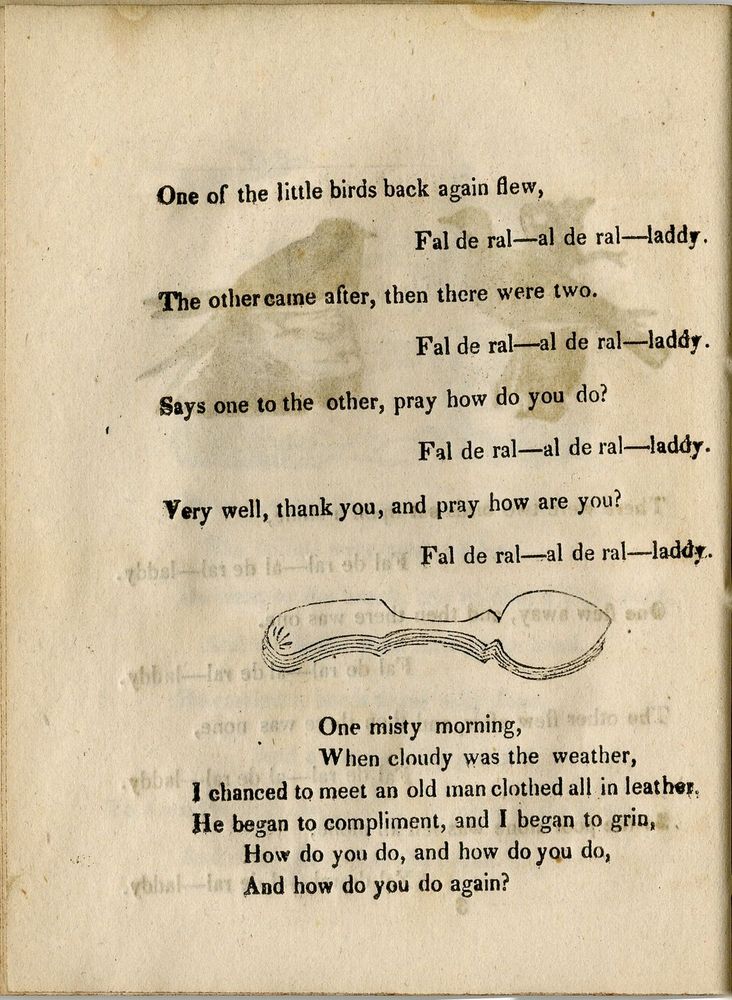 One of the little birds back again flew,
Fal de ral—al de ral—laddy.
The other came after, then there were two.
Fal de ral—al de ral—laddy.
Says one to the other, pray how do you do?
Fal de ral—al de ral—laddy.
Very well, thank you, and pray how are you?
Fal de ral—al de ral—laddy.
One misty morning,
When cloudy was the weather,
I chanced to meet an old man clothed all in leather.
He began to compliment, and I began to grin,
How do you do, and how do you do,
And how do you do again?